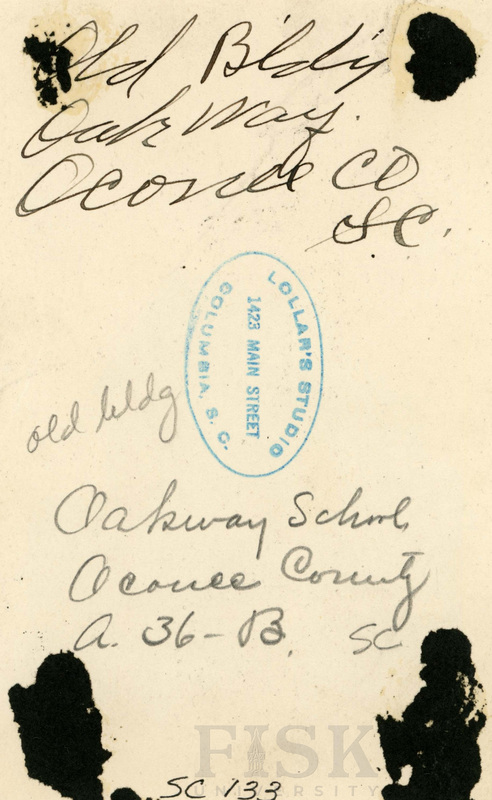 Old Bldg
Oak Way.
Oconee Co
SC.
LOLLAR'S STUDIO
1423 MAIN STREET
COLUMBIA, S. C.
old bldg
Oakway School
Oconee County
A. 36-B.
SC
FISK
UNIVERSITY
SC 133